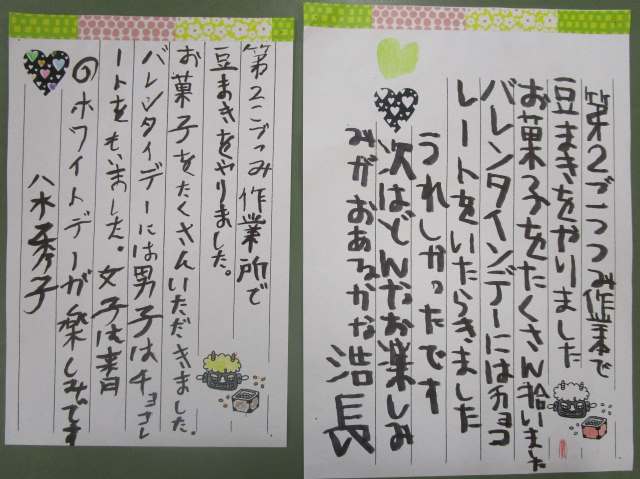 第2こづつみ作業所で
豆まきをやりました。
お菓子をたくさんいただきました。
バレンタイデーには男子はチョコレ
ートをもいました。女子は来月
のホワイトデーが楽しみです
八木秀子
第2こづつみ作業で
豆まきをやりました
お菓子をたくさん拾いました
バレンタインデーにはチョコ
レートをいただきました
うれしかったです
次はどんなお楽しみ
みがおあるかな
浩長